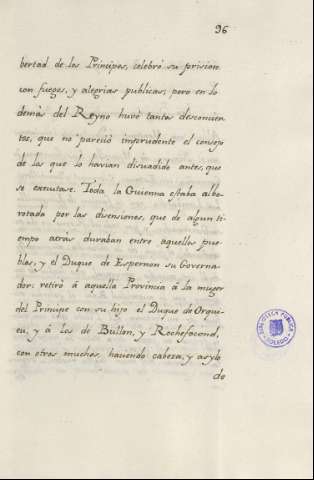 96
bertad de los Principes, celebró su prision
con fuegos, y alegrias publicas; pero en lo
demàs del Reyno huvo tantas desconuen
tos, que no pareció imprudente el consejo
de los que lo havian disuadido antes, que
se executase. Toda la Guienna estaba albo-
rotada por las disensiones, que de algun ti-
empo atràs duraban entre aquellos pue-
blos, y el Duque de Espernon su Governa-
dor: retiró à aquella Provincia à la muger
del Principe con su hijo el Duque de Orqui-
eu, y à los de Bullon, y Rochefocond,
con otros muchos, haviendo cabeza, y asylo
do
BIBLIOTECA PUBLICA
TOLEDO